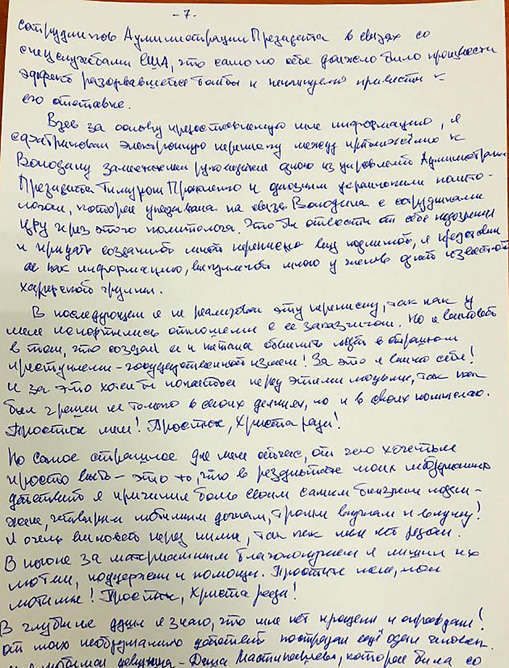 - 7 -
сотрудников Администрации Президента в связях со
спецслужбами США, что само по себе должно было произвести
эффект разорвавшейся бомбы и неминуемо привести к
его отставке.
Взяв за основу предоставленную мне информацию, я
сфабриковал электронную переписку между приближённым к
Володину заместителем руководителя одного из управлений Администрации
Президента Тимуром Прокопенко и одиозным украинским полито-
логом, которая указывала на связь Володина с сотрудниками
ЦРУ через этого политолога. Чтобы отвести от себя подозрения
и придать созданной мной переписке вид подлинной, я представил
её как информацию, выкупленную мною у членов одной известной
хакерской группы.
В последующем я не реализовал эту переписку, так как у
меня испортились отношения с её заказчиком. Но я виноват
в том, что создал её и пытался обвинить людей в страшном
преступлении - государственной измене! За это я виню себя!
И за это хотел бы покаяться перед этими людьми, так как
был грешен не только в своих деяниях, но и в своих помыслах.
Простите меня! Простите, Христа ради!
Но самое страшное для меня сейчас, от чего хочется
просто выть - это то, что в результате моих необдуманных
действий я причинил боль своим самым близким людям -
жене, четверым любимым дочкам, троим внучкам и внуку!
Я очень виноват перед ними, так как меня нет рядом.
В погоне за материальным благополучием я лишил их
любви, поддержки и помощи. Простите меня, мои
любимые! Простите, Христа ради!
В глубине души я знаю, что мне нет прощения и оправдания!
От моих необдуманных действий пострадал ещё один человек.
любимая девушка - Даша, которая была со